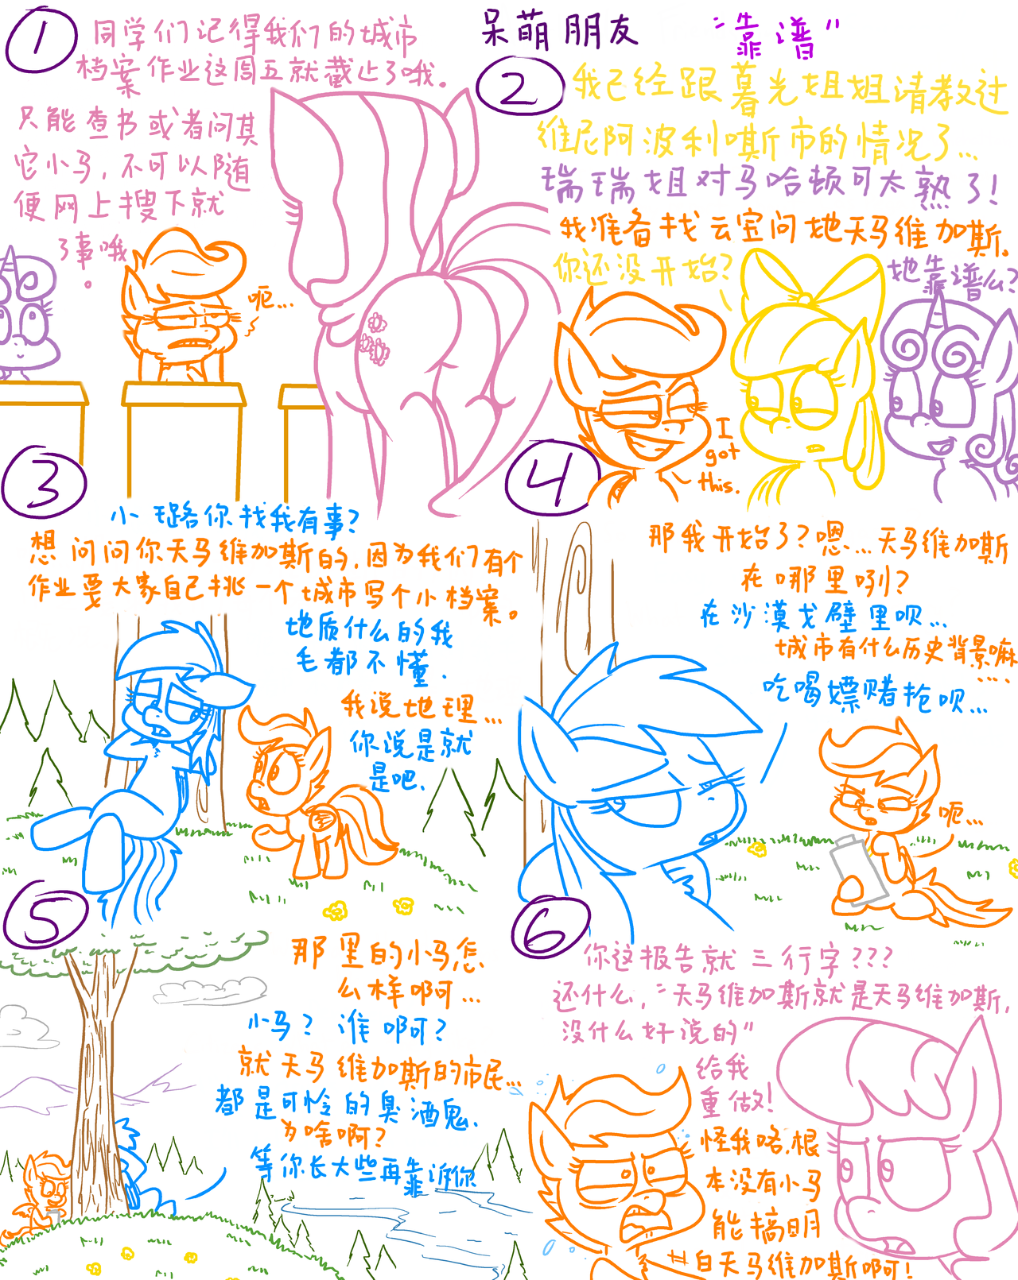 呆萌朋友
"靠谱"
1
同学们记得我们的城市
档案作业这周五就截止了哦。
只能查书或者问其
它小马，不可以随
便网上搜下就
了事哦
。
呃...
2
我已经跟暮光姐姐请教过
维尼阿波利嘶斯市的情况了...
瑞瑞姐对马哈顿可太熟了！
我准备找云宝问她天马维加斯。
你还没开始？
她靠谱么？
I
got
this.
3
小璐你找我有事？
想问问你天马维加斯的，因为我们有个
作业要大家自己挑一个城市写个小档案。
地质什么的我
毛都不懂.
我说地理...
你说是就
是吧.
4
那我开始了？嗯...天马维加斯
在哪里咧？
在沙漠戈壁里呗...
城市有什么历史背景嘛
....
吃喝嫖赌抢呗...
呃...
5
那里的小马怎
么样啊...
小马？谁啊？
就天马维加斯的市民...
都是可怜的臭酒鬼.
为啥啊？
等你长大些再靠诉你
6
你这报告就三行字？？？
还什么，"天马维加斯就是天马维加斯，
没什么好说的"
给我
重做！
怪我咯.根
本没有小马
能搞明
白天马维加斯啊！